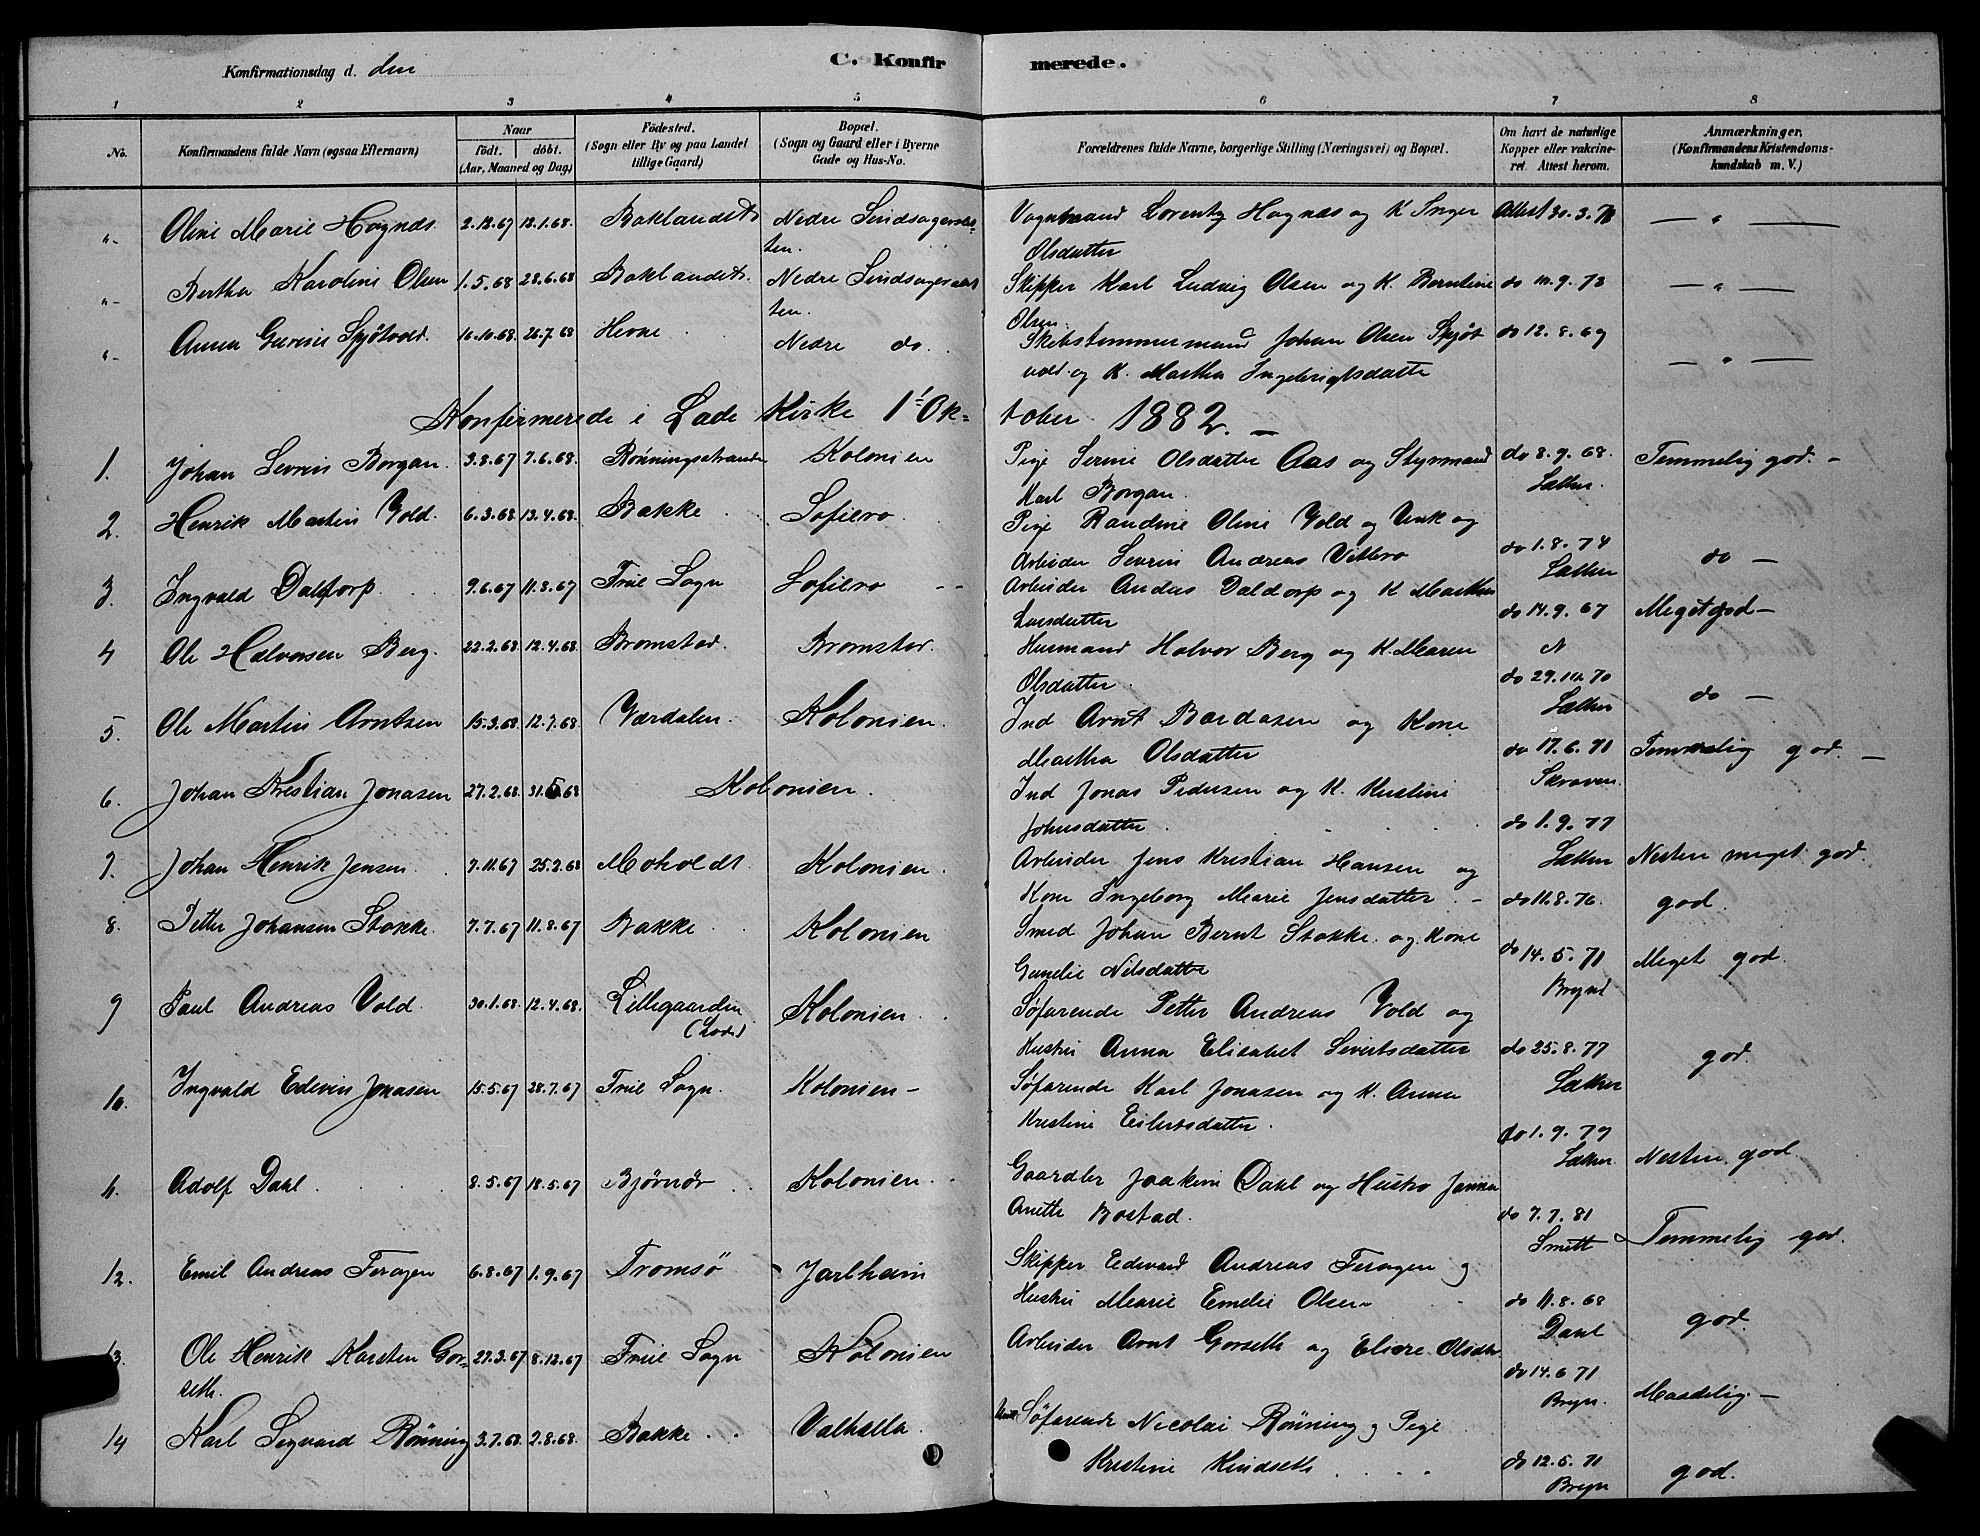 Konfirmationsdag d. den
C. Konfirmerede.
1 2 3 4 5 6 7 8
No. Konfirmandens fulde Navn (ogsaa Efternavn) Naar født. døbt. (Aar, Maaned og Dag) Fødested. (Sogn eller By og paa Landet tillige Gaard) Bopæl. (Sogn og Gaard eller i Byerne Gade og Hus-No. Forældrenes fulde Navne, borgerlige Stilling (Næringsvei) og Bopæl. Om havt de naturlige Kopper eller vakcineret. Attest herom. Anmærkninger. (Konfirmandens Kristendomskundskab m. V.)
"- Oline Marie Høgnds. 2.12.67 12.1.68. Baklandet Nedre Vognmand Lorentz Hognæs og K Inger Attest 30.3.78 — " —
ten. Olsdatter
"- Bertha Karoline Olsen 1.5.68 28.6.68 Baklandet. Nedre Skipper Karl Ludvig Olsen og K. Berntine do 10.9.73 — " —
ten. Olsen.
"- Anna Gurine Skjøtvold. 10.10.68. 26.7.68 Hevne Nedre do. Skibstømmermand Johan Olsen Skjøt do 12.8.69 — " —
vold og K. Martha Ingebrigtsdatte
Konfirmerede i Lade Kirke 1ste Oktober 1882. —
1. Johan Sevrin Borgan. 3.8.67 7.6.68. Rønningsstranden Kolonien Pige Serine Olsdatter Aas og Styrmand do 8.9.68. Temmelig god. -
Karl Borgan. Lækker.
2. Henrik Martin Vold. 6.3.68 13.4.68. Bakke Sofiero. Pige Randine Oline Vold og Unk og
Arbeider Sevrin Andreas Vikero do 1.8.74 do —
3. Ingvald Daldorp. 9.6.67 11.8.67 Frue Sogn Sofiero -- Arbeider Anders Daldorp og K Martha Lækker
Larsdatter do 14.9.67 Meget god —
4 Ole Halvorsen Berg. 22.2.68 12.4.68. Bromstad. Bromstad. Husmand Halvor Berg og K. Maren N
Olsdatter. do 29.10.70
5. Ole Martin Arntsen 15.3.68 12.7.68. Værdalen. Kolonien. Ind Arnt Bardosen og Kone Lækker do —
Martha Olsdatter do 17.6.71 Temmelig god. —
6. Johan Kristian Jonasen 27.2.68 31.5.68 Kolonien. Ind Jonas Pedersen og K. Kristine
Johnsdatter. do 1.9.77
7. Johan Henrik Jensen 7.11.67 25.2.68 Moholdt Kolonien. Arbeider Jens Kristian Hansen og Lækker Nesten meget god.
Kone Ingeborg Marie Jensdatter. - do 11.8.76. god.
8. Petter Johansen Stokke. 7.7.67 11.8.67 Bakke Kolonien Smed Johan Bernt Stokke og Kone
Gunelie Nilsdatter do 14.5.71 Meget god.
9 Paul Andreas Vold. 30.1.68. 12.4.68. Lillegaarden Kolonien. Søfarende Petter Andreas Vold og Brynd
(Lade) Hustru Anna Elisabet Sivertsdatter do 25.8.77 god.
10. Ingvald Edevin Jonasen 15.5.67 28.7.67 Frue Sogn. Kolonien - Søfarende Karl Jonasen og K. Anna Lækker
Kristine Eilertsdatter. do 1.9.79
11. Adolf Dahl. 8.5.67 18.5.67 Bjørnør Kolonien. Gaardbr Joakim Dahl og Hustru Lækker. Nesten god.
Anette Bostad. do 7.7.81
12. Emil Andreas Feragen 6.8.67 1.9.67 Tromsø Jarlheim Skipper Edevard Andreas Feragen og Smitt Temmelig god.
Hustru Marie Emelie Olsen do 11.8.68
13. Ole Henrik Karsten Gor- 27.3.67 8.12.67 Frue Sogn Kolonien Arbeider Arnt Gorseth og Elisæ Olsdtr Dahl god.
seth. do 14.6 71
Bryn. Maadelig. —
14 Karl Sigvard Rønning 3.7.68. 2.8.68. Bakke Valhalla. Søfarende Nicolai Rønning og Pige
Kristine Kindseth. do 12.5.71
Bryn god.